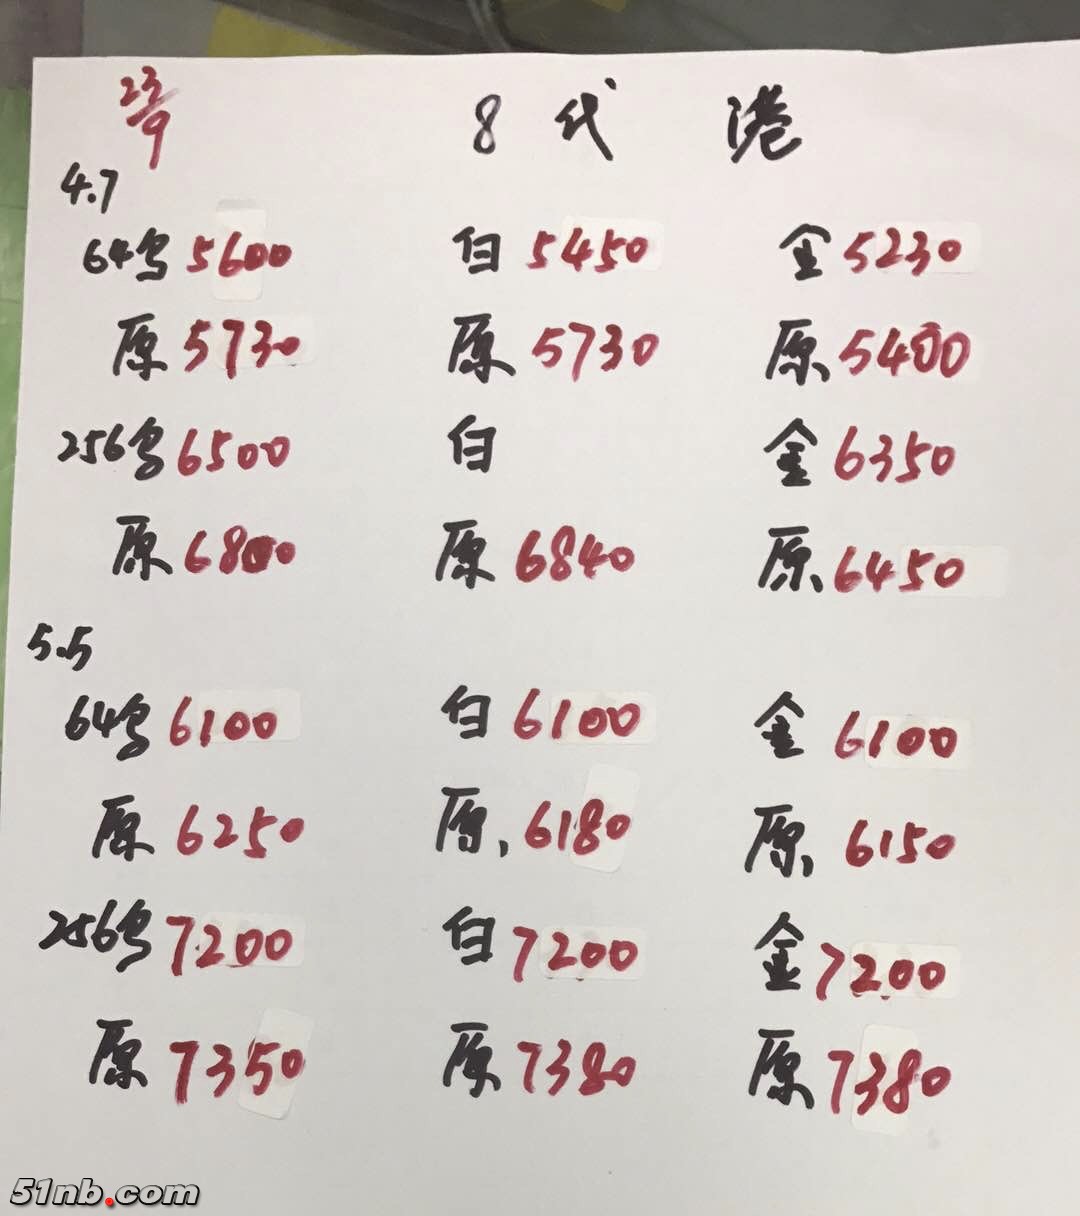 23/9 8代 港
4.7
64乌 5600 白 5450 金 5230
原 5730 原 5730 原 5400
256乌 6500 白 金 6350
原 6800 原 6840 原 6450
5.5
64乌 6100 白 6100 金 6100
原 6250 原 6180 原 6150
256乌 7200 白 7200 金 7200
原 7350 原 7380 原 7380
51nb.com